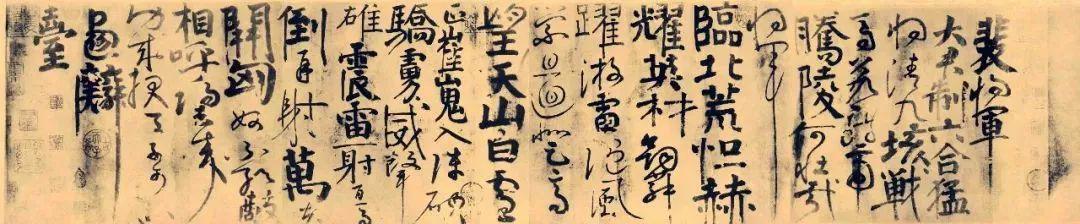 裴將軍
大君制六合猛
將清九垓戰
馬若龍虎
騰陵何壯哉
將軍
臨北荒怛赫
耀英材劍舞
躍游雷隨風
縈且迴登高
望天山白雪
正崔嵬入陣破
驕虜威聲
雄震雷一射百馬
倒再射萬夫
開匈奴不敢敵
相呼歸去來
功成報天子可
以畫麟
臺